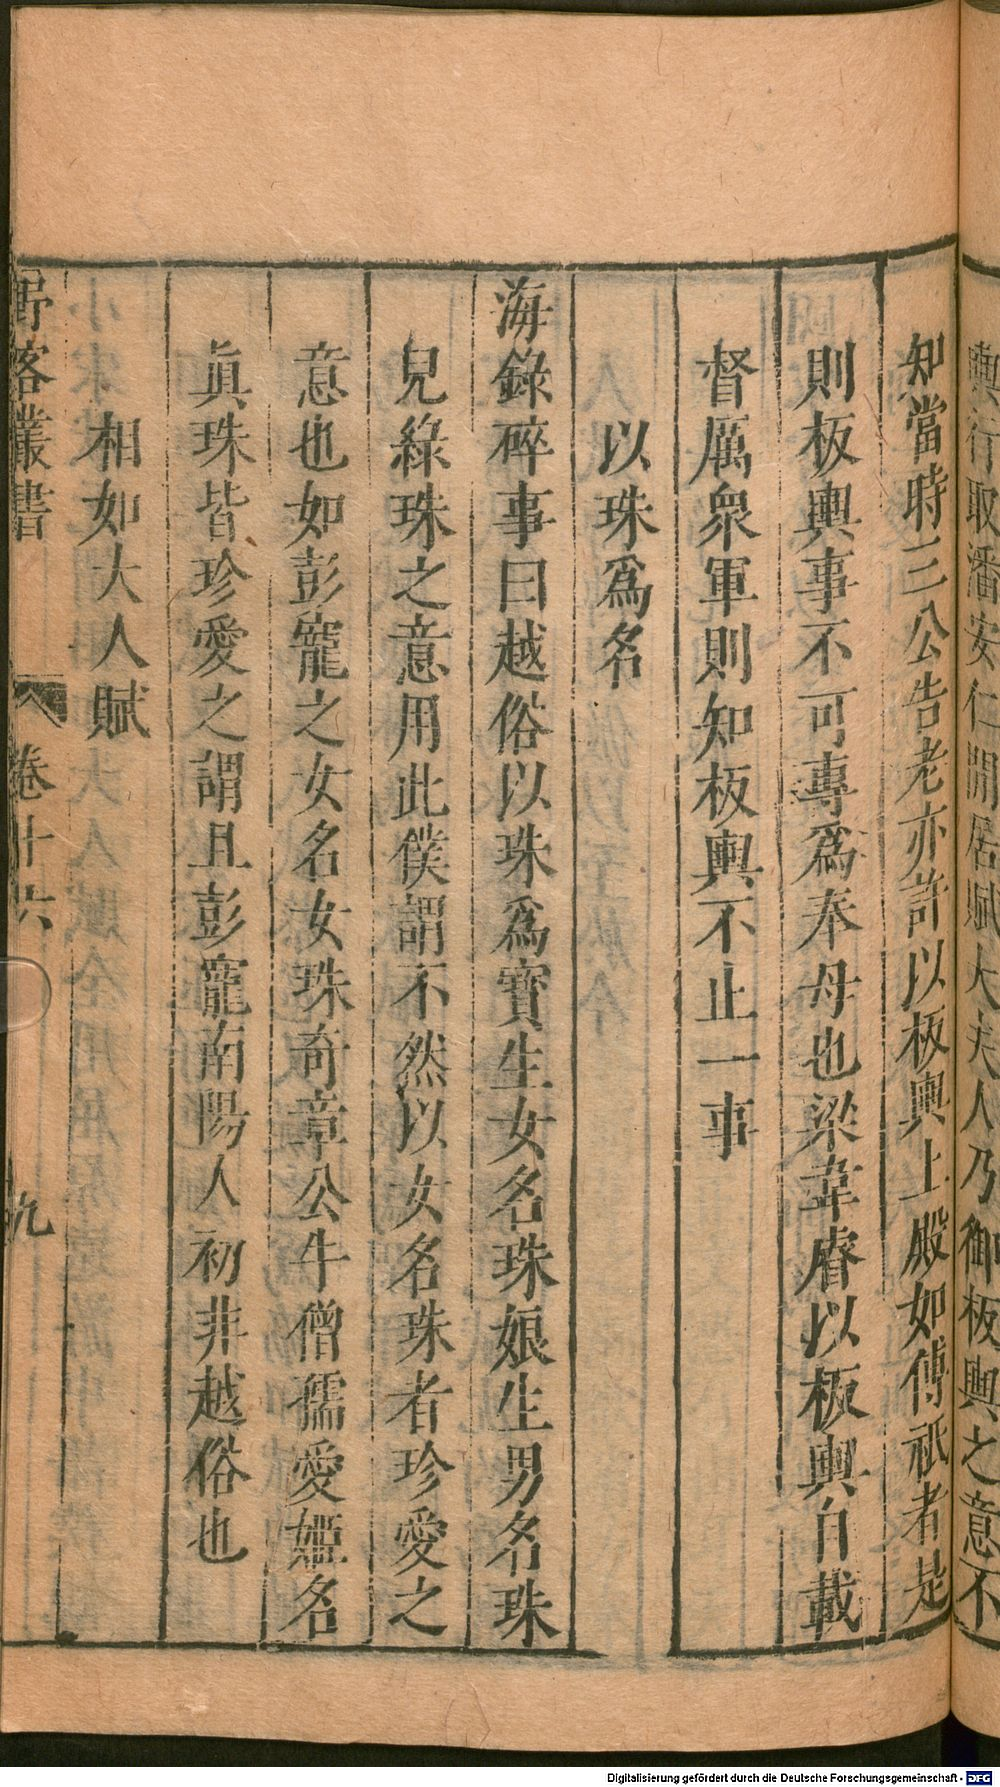 輿行取潘安仁閒居賦太夫人乃御板輿之意不
知當時三公告老亦許以板輿上殿如傅祇者是
則板輿事不可專爲奉母也梁韋睿以板輿自載
督厲衆軍則知板輿不止一事
以珠爲名
海錄碎事曰越俗以珠爲寶生女名珠娘生男名珠
兒綠珠之意用此僕謂不然以女名珠者珍愛之
意也如彭寵之女名女珠奇章公牛僧孺愛姬名
眞珠皆珍愛之謂且彭寵南陽人初非越俗也
相如大人賦
野客叢書 卷十六 九
Digitalisierung gefördert durch die Deutsche Forschungsgemeinschaft - DFG